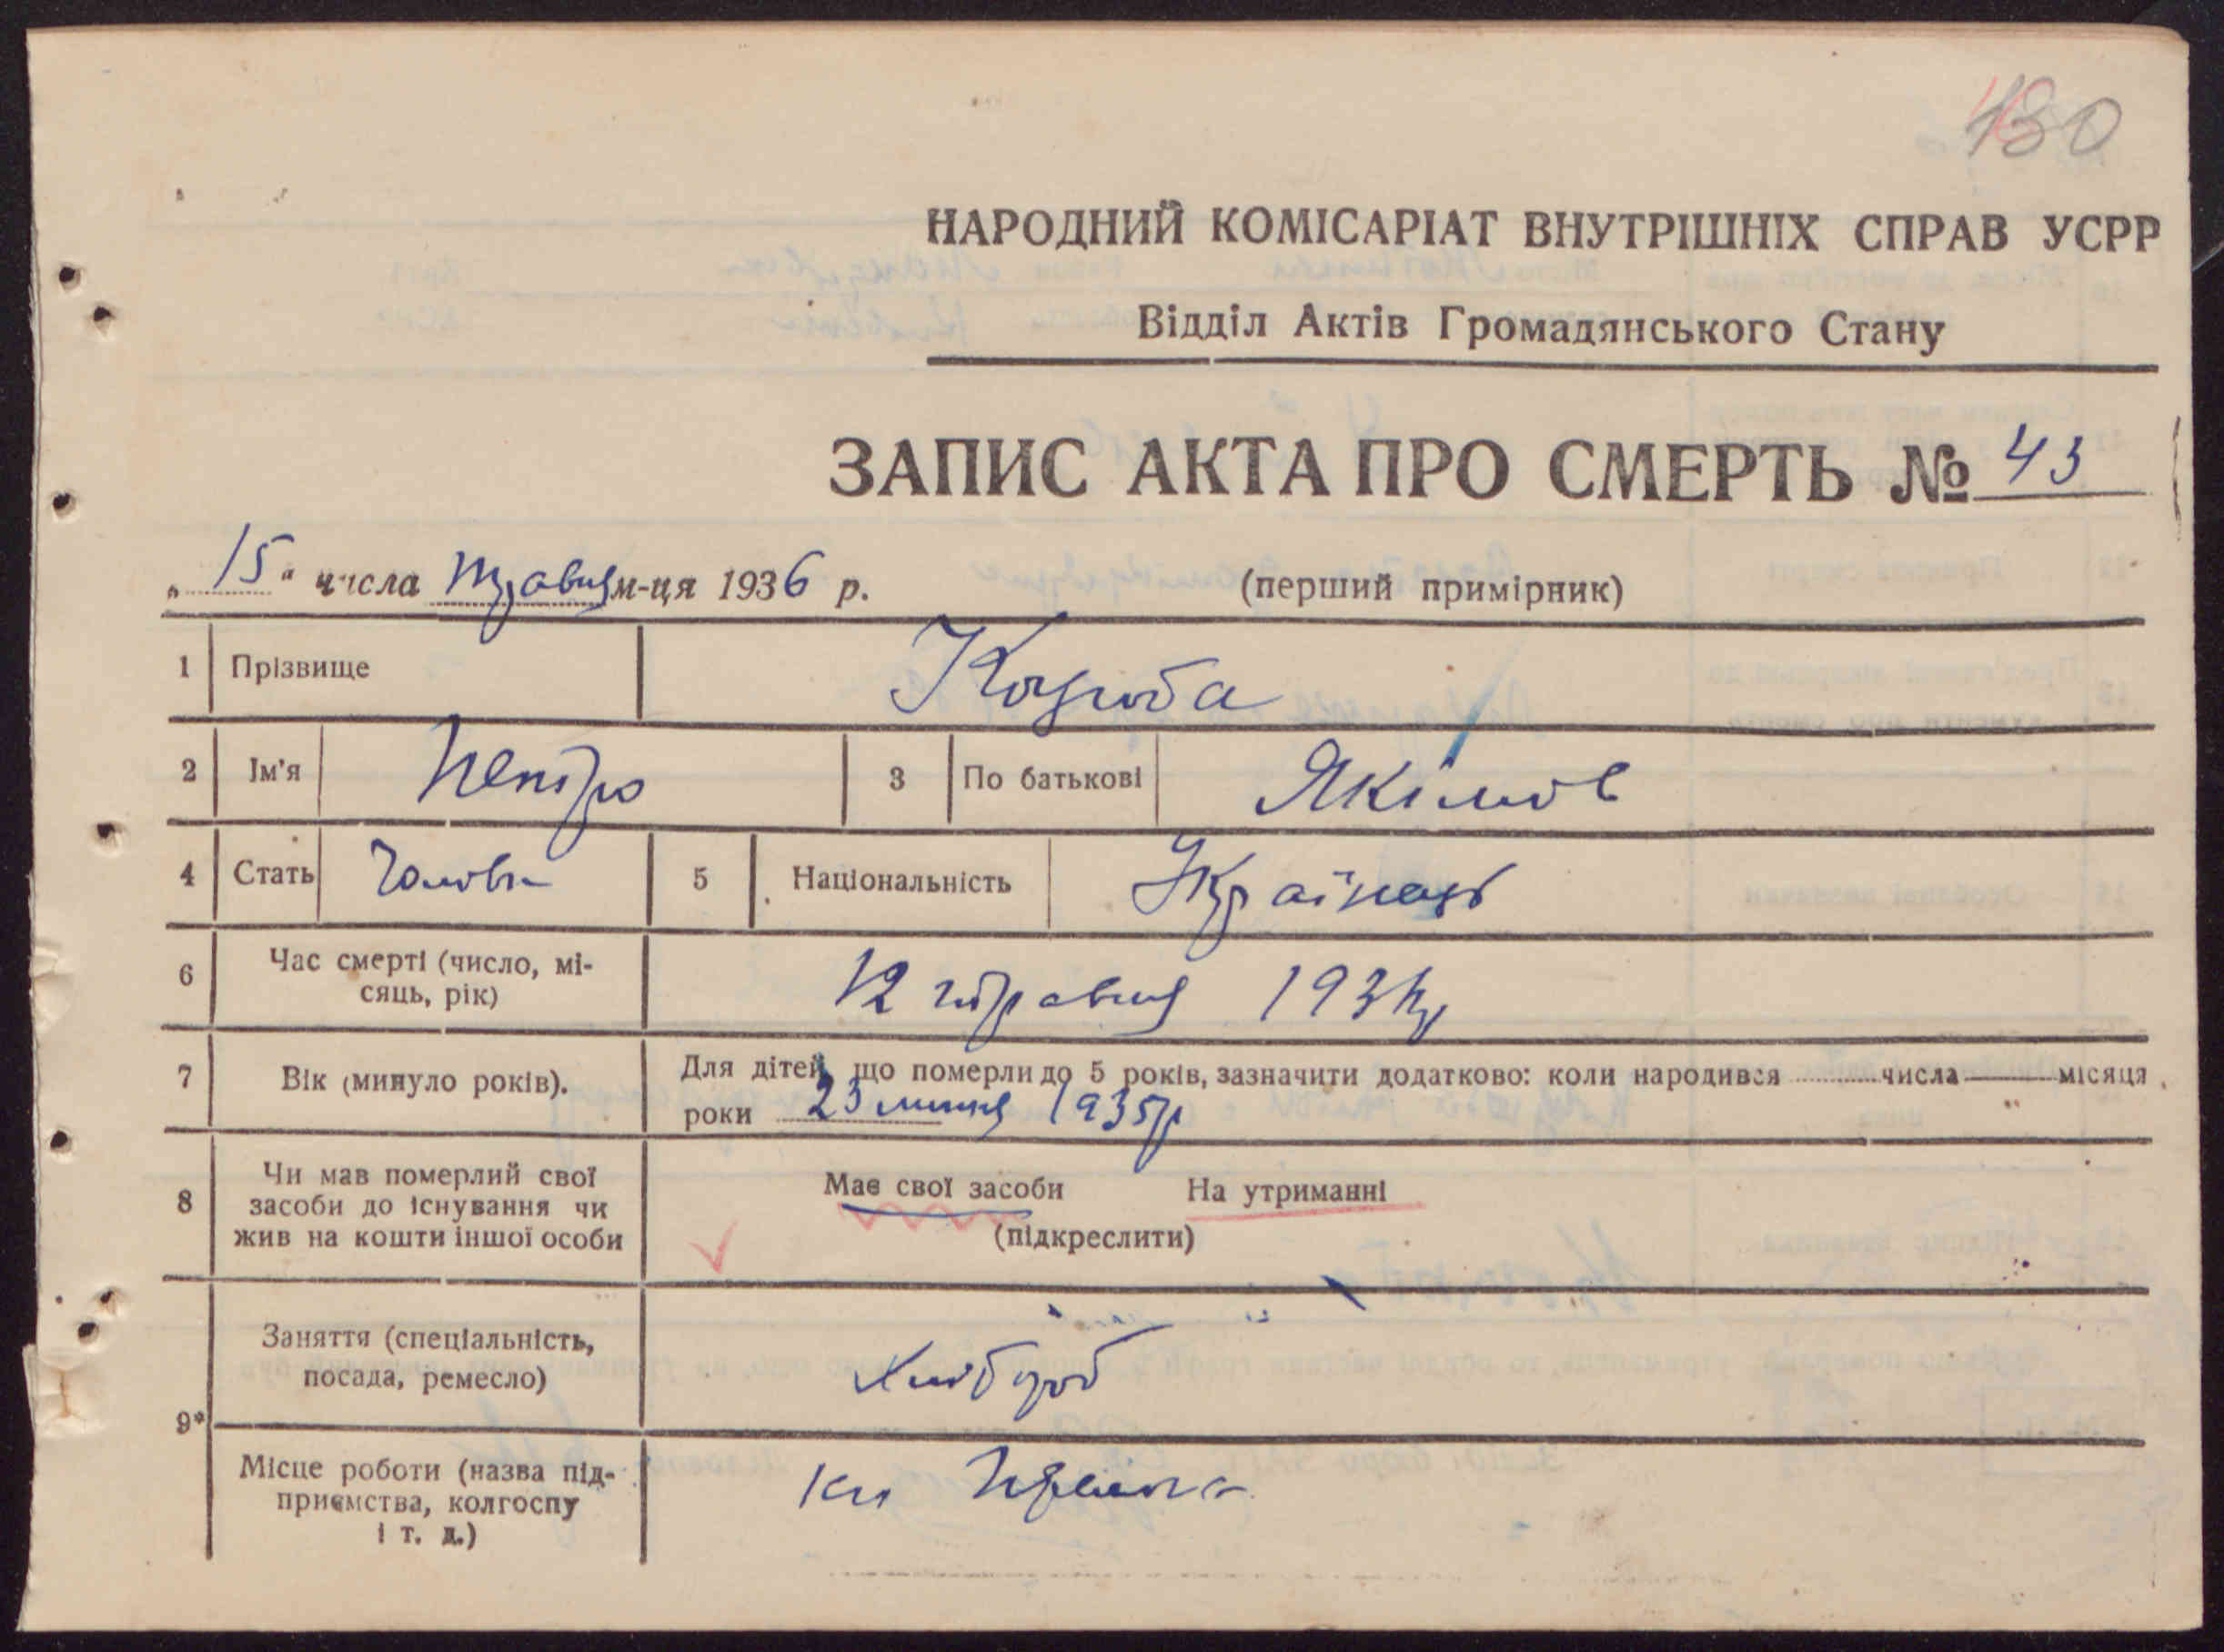 430
НАРОДНИЙ КОМІСАРІАТ ВНУТРІШНІХ СПРАВ УСРР
Відділ Актів Громадянського Стану
ЗАПИС АКТА ПРО СМЕРТЬ № 43
„15“ числа травня м-ця 1936 р. (перший примірник)
1 Прізвище Коцюба
2 Ім'я Петро 3 По батькові Якімов
4 Стать Чолов 5 Національність Українець
6 Час смерті (число, мі-
сяць, рік) 12 травня 1936р
7 Вік (минуло років). Для дітей, що померли до 5 років, зазначити додатково: коли народився числа місяця
роки 23 липня 1935р
8 Чи мав померлий свої
засоби до існування чи
жив на кошти іншої особи
Має свої засоби На утриманні
(підкреслити)
9* Заняття (спеціальність,
посада, ремесло) Хлібороб
Місце роботи (назва під-
приємства, колгоспу
і т. д.)